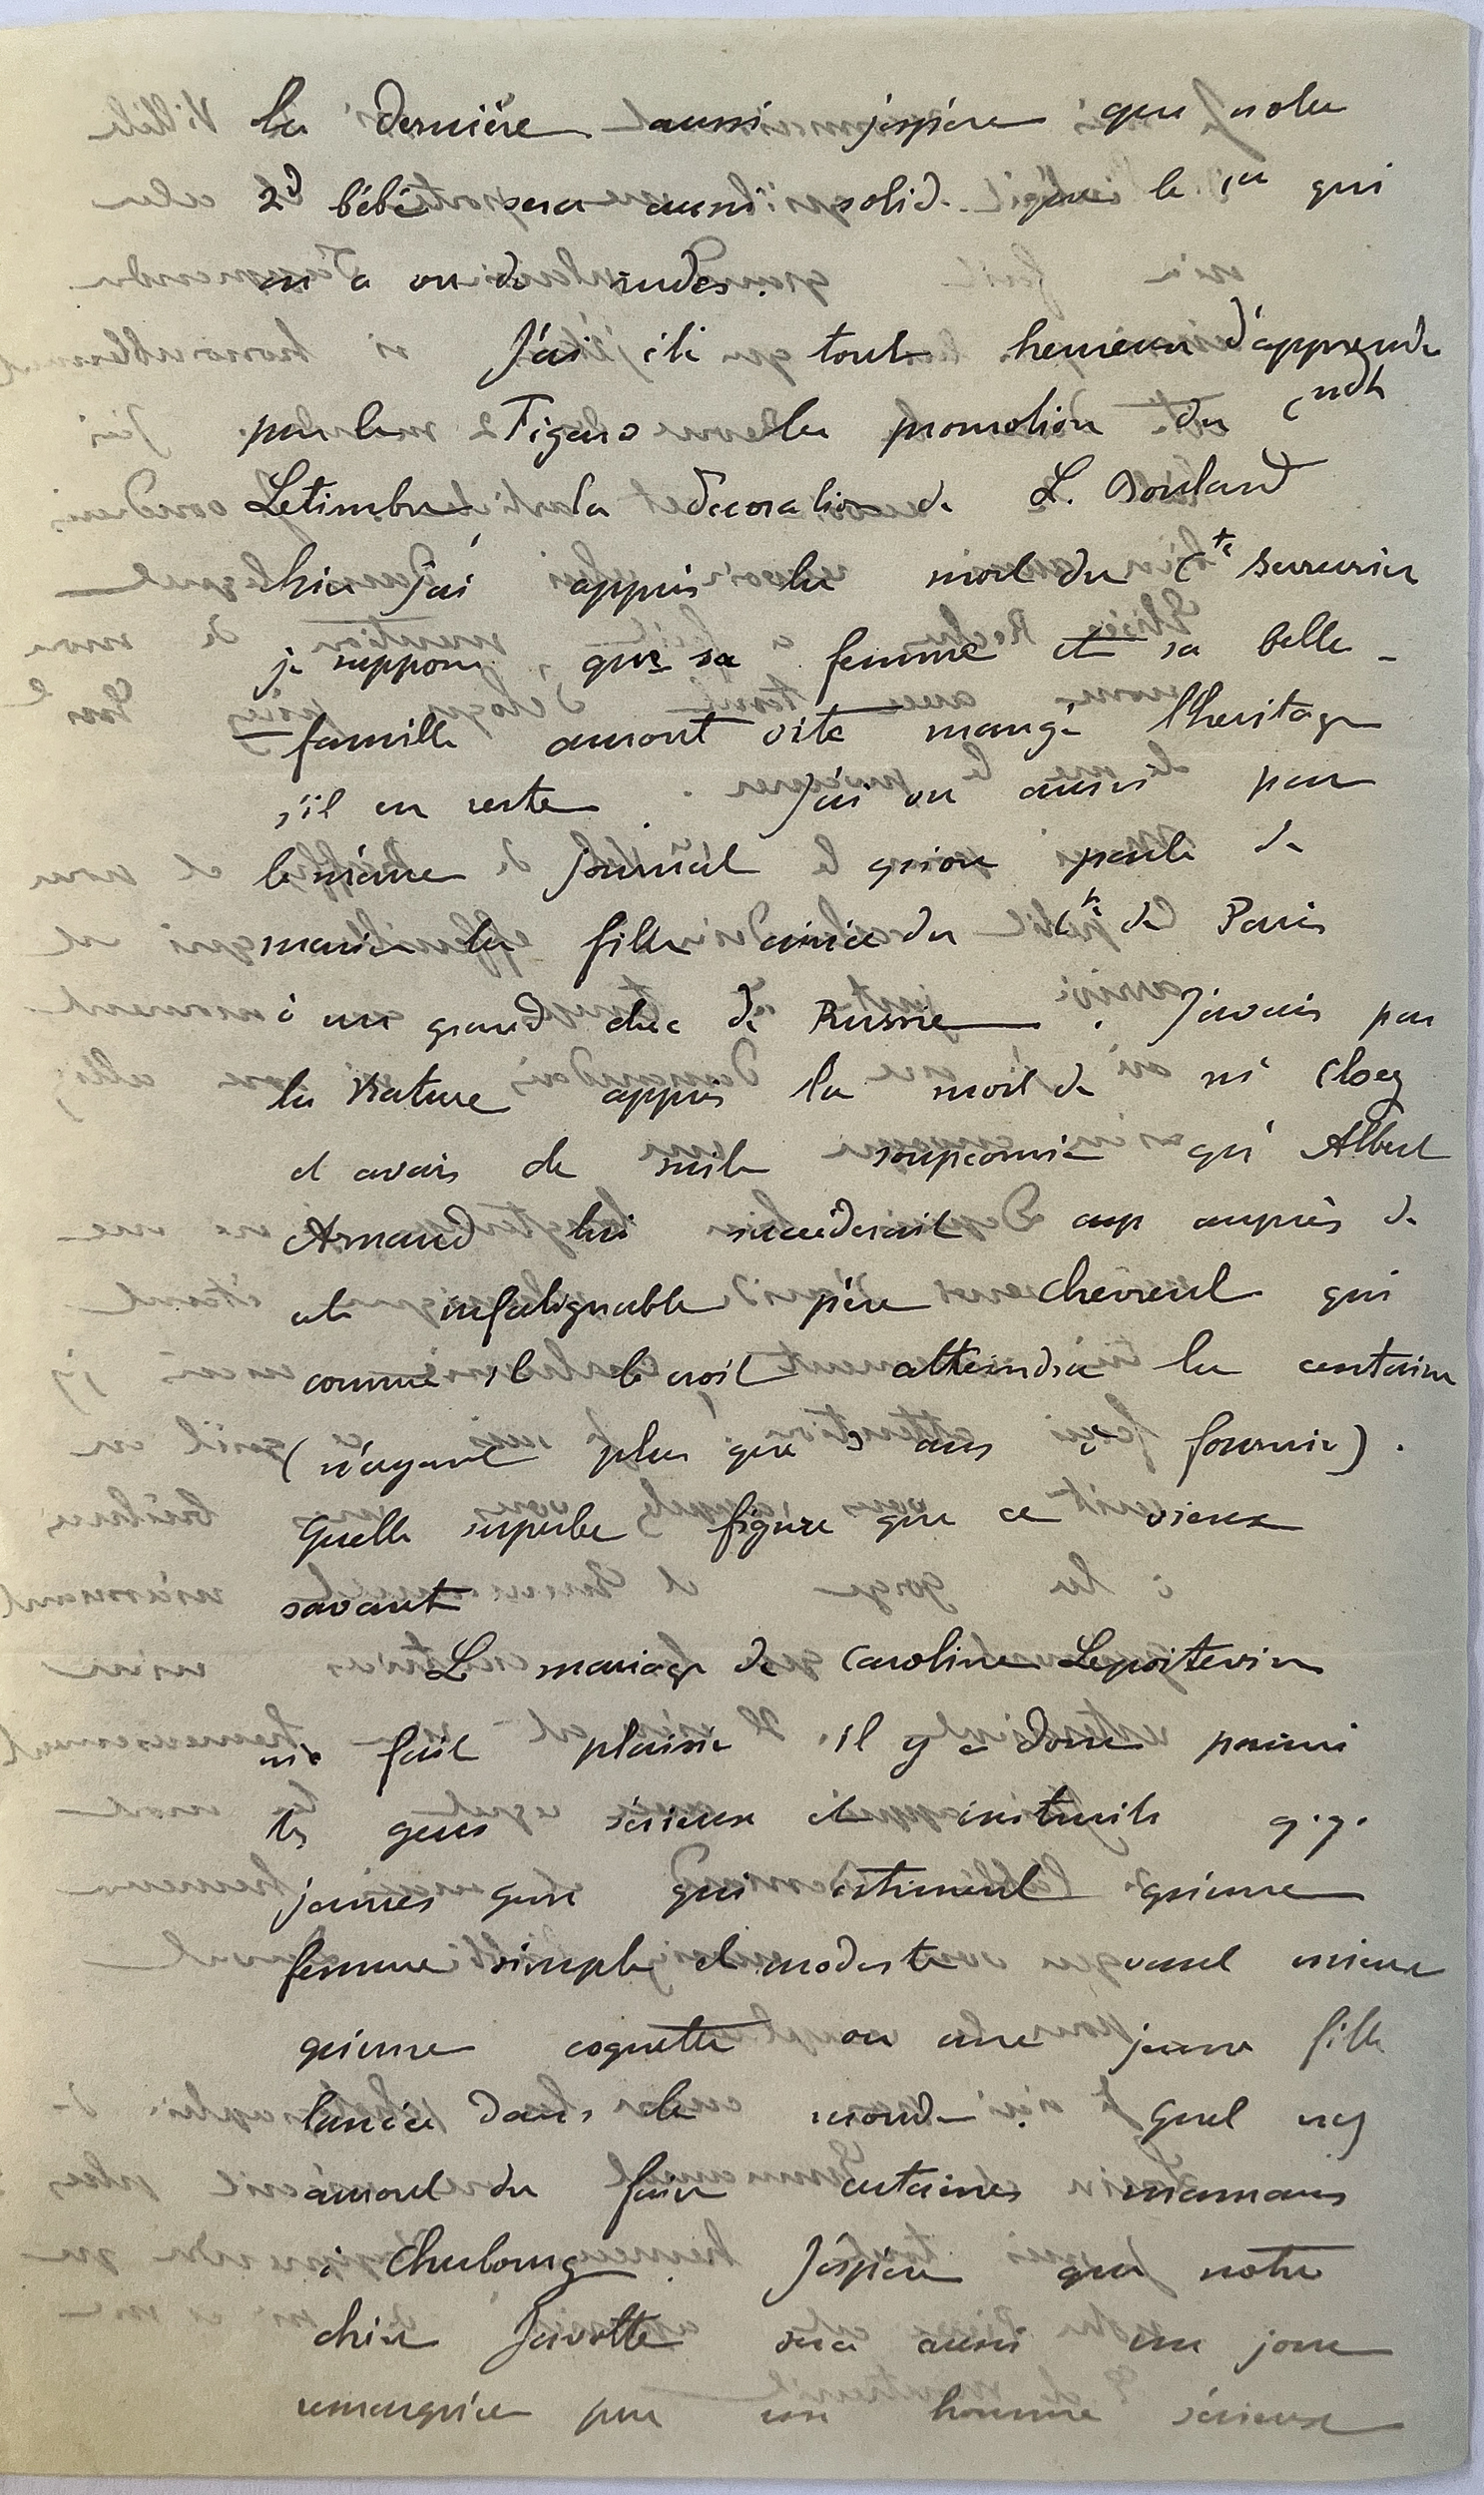 la dernière aussi j'espère que notre
2d bébé sera aussi solide que le 1er qui
en a vu de rudes.
J'ai été toute heureux d'apprendre
par le Figaro la promotion du Cndt
Letimbre la decoration de L.
hier j'ai appris la mort du Cte
je suppose que sa femme et sa belle-
famille auront vite mangé l'heritage
s'il en reste. J'ai vu aussi par
le même journal qu'on parle de
marier la fille ainée du Cte de Paris
à un grand duc de Russie. J'avais par
la Nature appris la mort de mr Cloez
et avais de suite soupconné qu' Albert
Arnaud lui succéderait aup auprès de
cet infatiguable père Chevreul qui
comme il le croit atteindra la centaine
(n'ayant plus que 3 ans à fournir).
Quelle superbe figure que ce vieux
savant
Le mariage de Caroline Lepoitevin
me fait plaisir il y a donc parmi
les gens sérieux et instruits q.q.
jeunes gens qui estiment qu'une
femme simple et modeste vaut mieux
qu'une coquette ou une jeune fille
lancée dans le monde. Quel nez
auront du faire certaines mamans
à Cherbourg. J'espère que notre
chère Javotte sera aussi un jour
remarquée par un homme sérieux